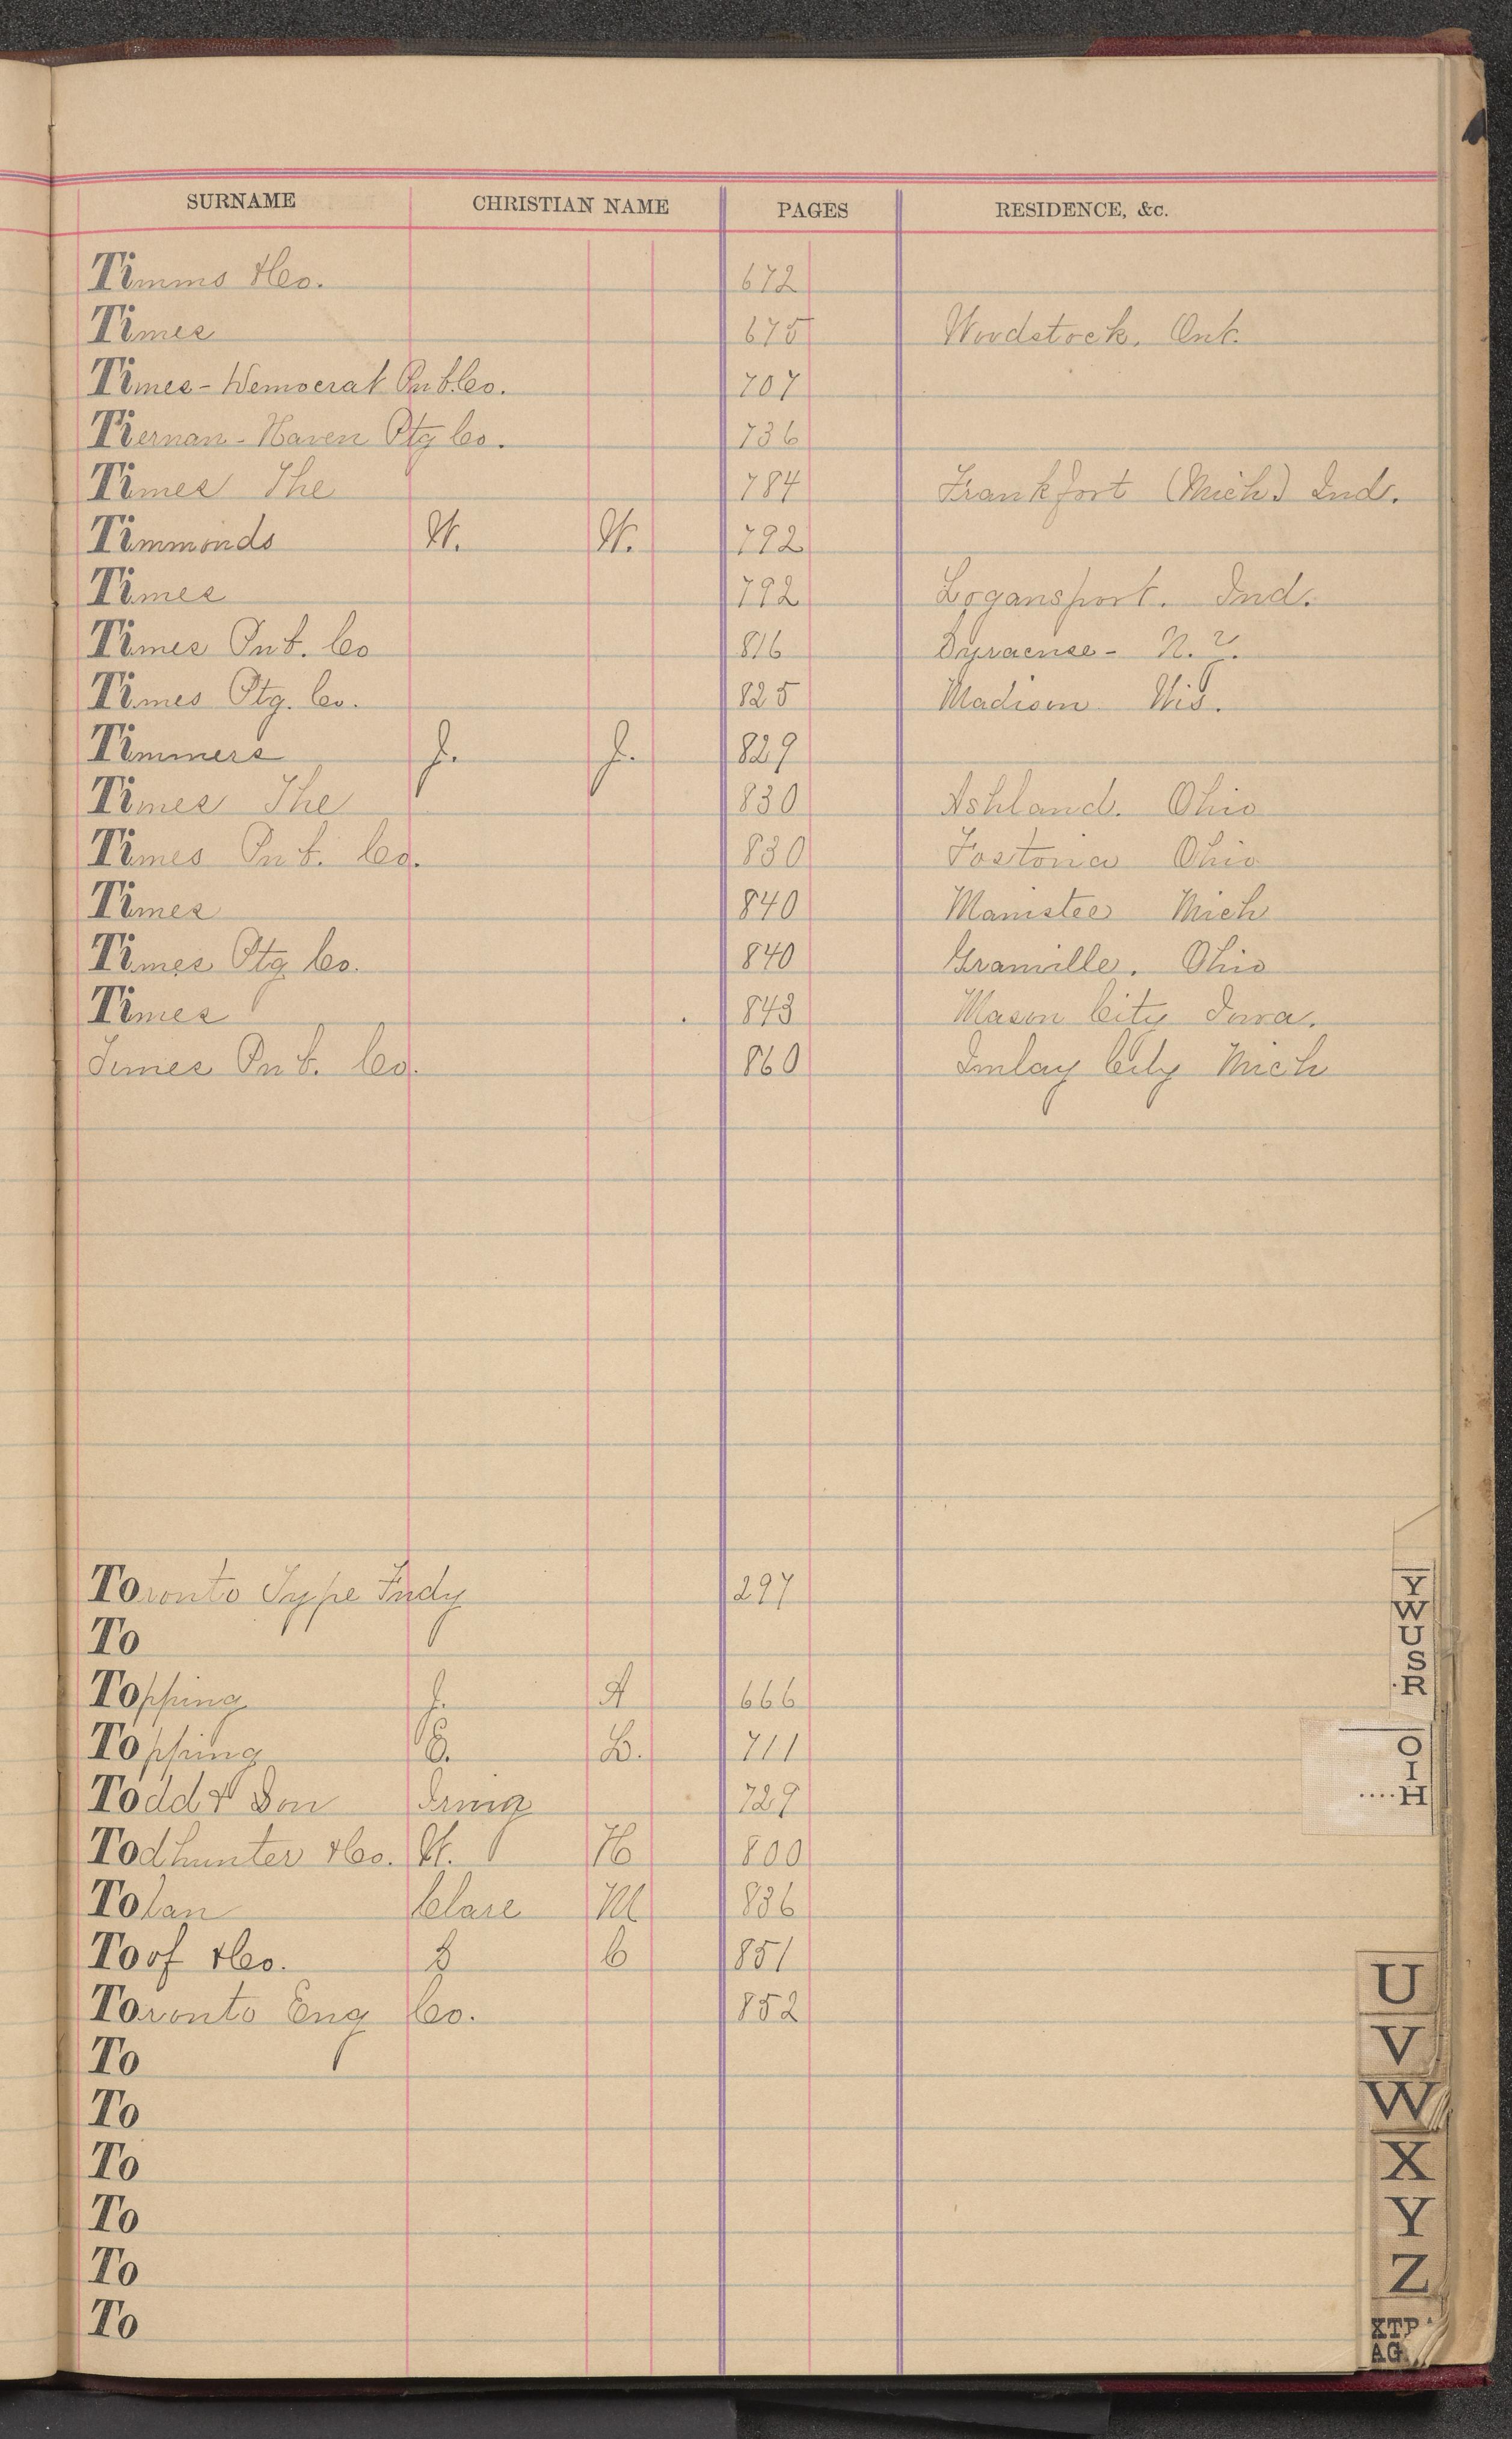 SURNAME CHRISTIAN NAME PAGES RESIDENCE, &c.
Timms & Co. 672
Times 675 Woodstock. Ont.
Times-Democrat Pub. Co. 707
Tiernan-Haven Ptg Co. 736
Times The 784 Frankfort (Mich) Ind.
Timmonds W. W. 792
Times 792 Logansport. Ind.
Times Pub. Co 816 Syracuse - N.Y.
Times Ptg. Co. 825 Madison Wis.
Timmers J. J. 829
Times The 830 Ashland. Ohio
Times Pub. Co. 830 Fostoria Ohio
Times 840 Manistee Mich
Times Ptg Co. 840 Granville. Ohio
Times 843 Mason City Iowa.
Times Pub. Co. 860 Imlay City Mich
Toronto Type Fndy 297
To
Topping J. A 666
Topping E. B. 711
Todd & Son Irving 729
Todhunter & Co. W. H 800
Tolan Clare M 836
Toof & Co. S C 851
Toronto Eng Co. 852
To
To
To
To
To
To
Y
W
U
S
R
O
I
H
U
V
W
X
Y
Z
XTP
AG.